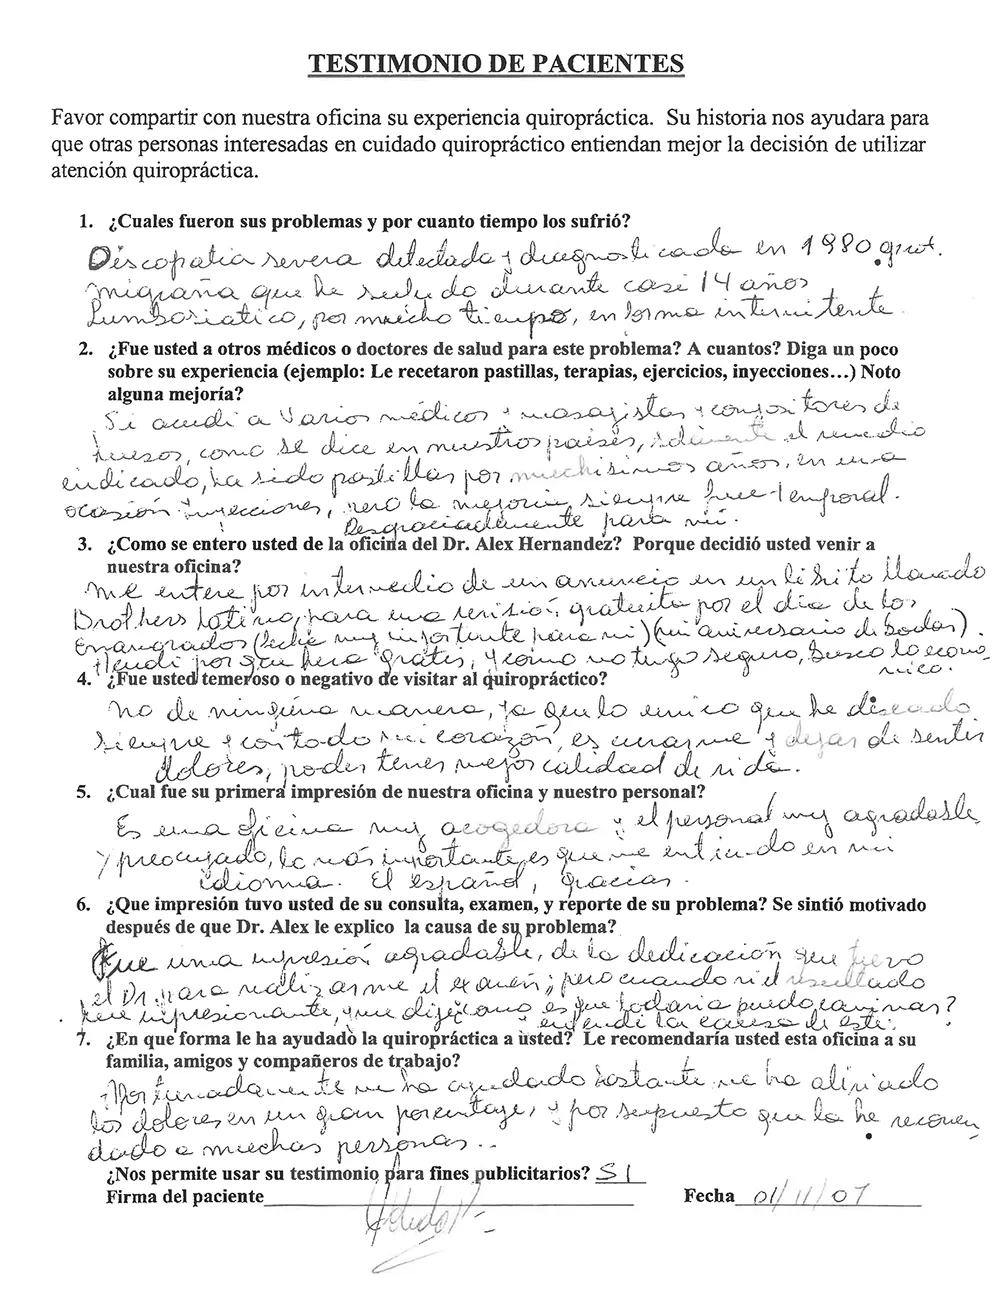 TESTIMONIO DE PACIENTES
Favor compartir con nuestra oficina su experiencia quiropráctica. Su historia nos ayudara para
que otras personas interesadas en cuidado quiropráctico entiendan mejor la decisión de utilizar
atención quiropráctica.
1. ¿Cuales fueron sus problemas y por cuanto tiempo los sufrió?
Discopatia severa detectada y diagnosticada en 1980.
migraña que he sufrido durante casi 14 años
Lumbosiatico, por muecho tiempo, en forma intermitente.
2. ¿Fue usted a otros médicos o doctores de salud para este problema? A cuantos? Diga un poco
sobre su experiencia (ejemplo: Le recetaron pastillas, terapias, ejercicios, inyecciones…) Noto
alguna mejoría?
Si acudi a varios médicos y masajistas y compositores de
huesos, como se dice en nuestros paises, solamente el remedio
indicado, ha sido pastillas por muchisimos años, en una
ocasión inyecciones, pero la mejoria siempre fue temporal.
Desgraciadamente para mi.
3. ¿Como se entero usted de la oficina del Dr. Alex Hernandez? Porque decidió usted venir a
nuestra oficina?
me entere por intermedio de un anuncio en un librito llamado
Brothers Latino, para una revisión gratuita por el dia de los
Enamorados (fecha muy importante para mi) (mi aniversario de bodas).
Acudi porque era gratis, y como no tengo seguro, busco lo econo
mico.
4. ¿Fue usted temeroso o negativo de visitar al quiropráctico?
No de ninguna manera, ya que lo unico que he deseado
siempre y con todo mi corazón, es curarme y dejar de sentir
dolores, poder tener mejor calidad de vida.
5. ¿Cual fue su primera impresión de nuestra oficina y nuestro personal?
Es una oficina muy acogedora y el personal muy agradable
y preocupado, lo más importante, es que me entiendo en mi
idioma. El español, gracias.
6. ¿Que impresión tuvo usted de su consulta, examen, y reporte de su problema? Se sintió motivado
después de que Dr. Alex le explico la causa de su problema?
Fue una impresión agradable, de la dedicación que tuvo
el Dr. para realizarme el examen; pero cuando vi el resultado
fue impresionante, que dije como es que todavia puedo caminar?
entendi la causa de este.
7. ¿En que forma le ha ayudado la quiropráctica a usted? Le recomendaría usted esta oficina a su
familia, amigos y compañeros de trabajo?
Afortunadamente me ha ayudado bastante me ha aliviado
los dolores en un gran porcentaje, y por supuesto que la he recomen
dado a muechas personas...
¿Nos permite usar su testimonio para fines publicitarios? SI
Firma del paciente Fecha 01/11/07